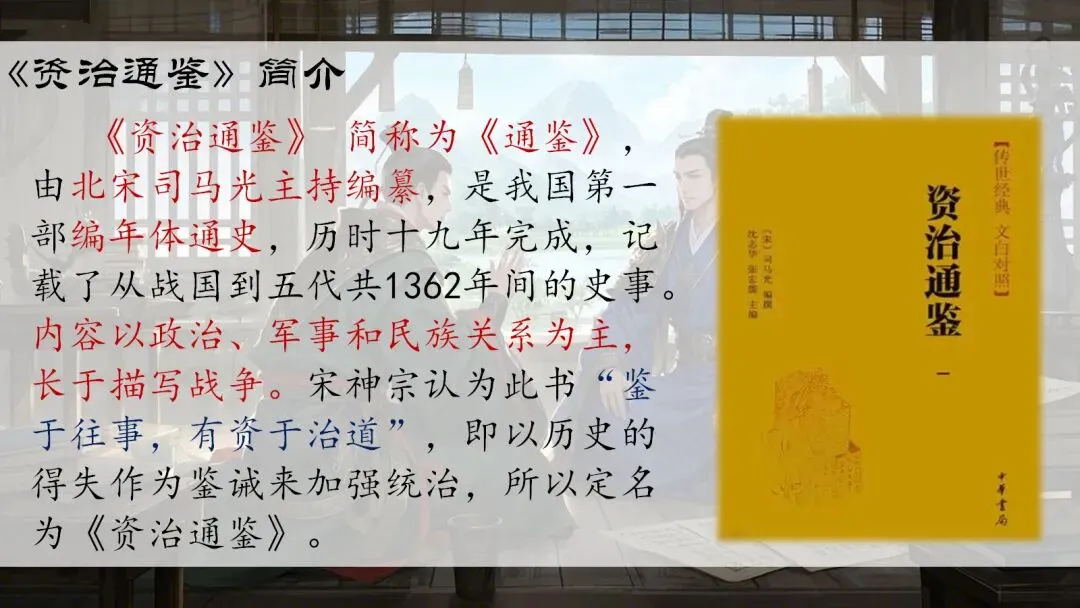 《资治通鉴》简介
《资治通鉴》 简称为《通鉴》，
由北宋司马光主持编纂，是我国第一
部编年体通史，历时十九年完成，记
载了从战国到五代共1362年间的史事。
内容以政治、军事和民族关系为主，
长于描写战争。宋神宗认为此书“鉴
于往事，有资于治道”，即以历史的
得失作为鉴诫来加强统治，所以定名
为《资治通鉴》。
【传世经典 文白对照】
资治通鉴
一
［宋］司马光 编撰
沈志华 张宏儒 主编
中华书局